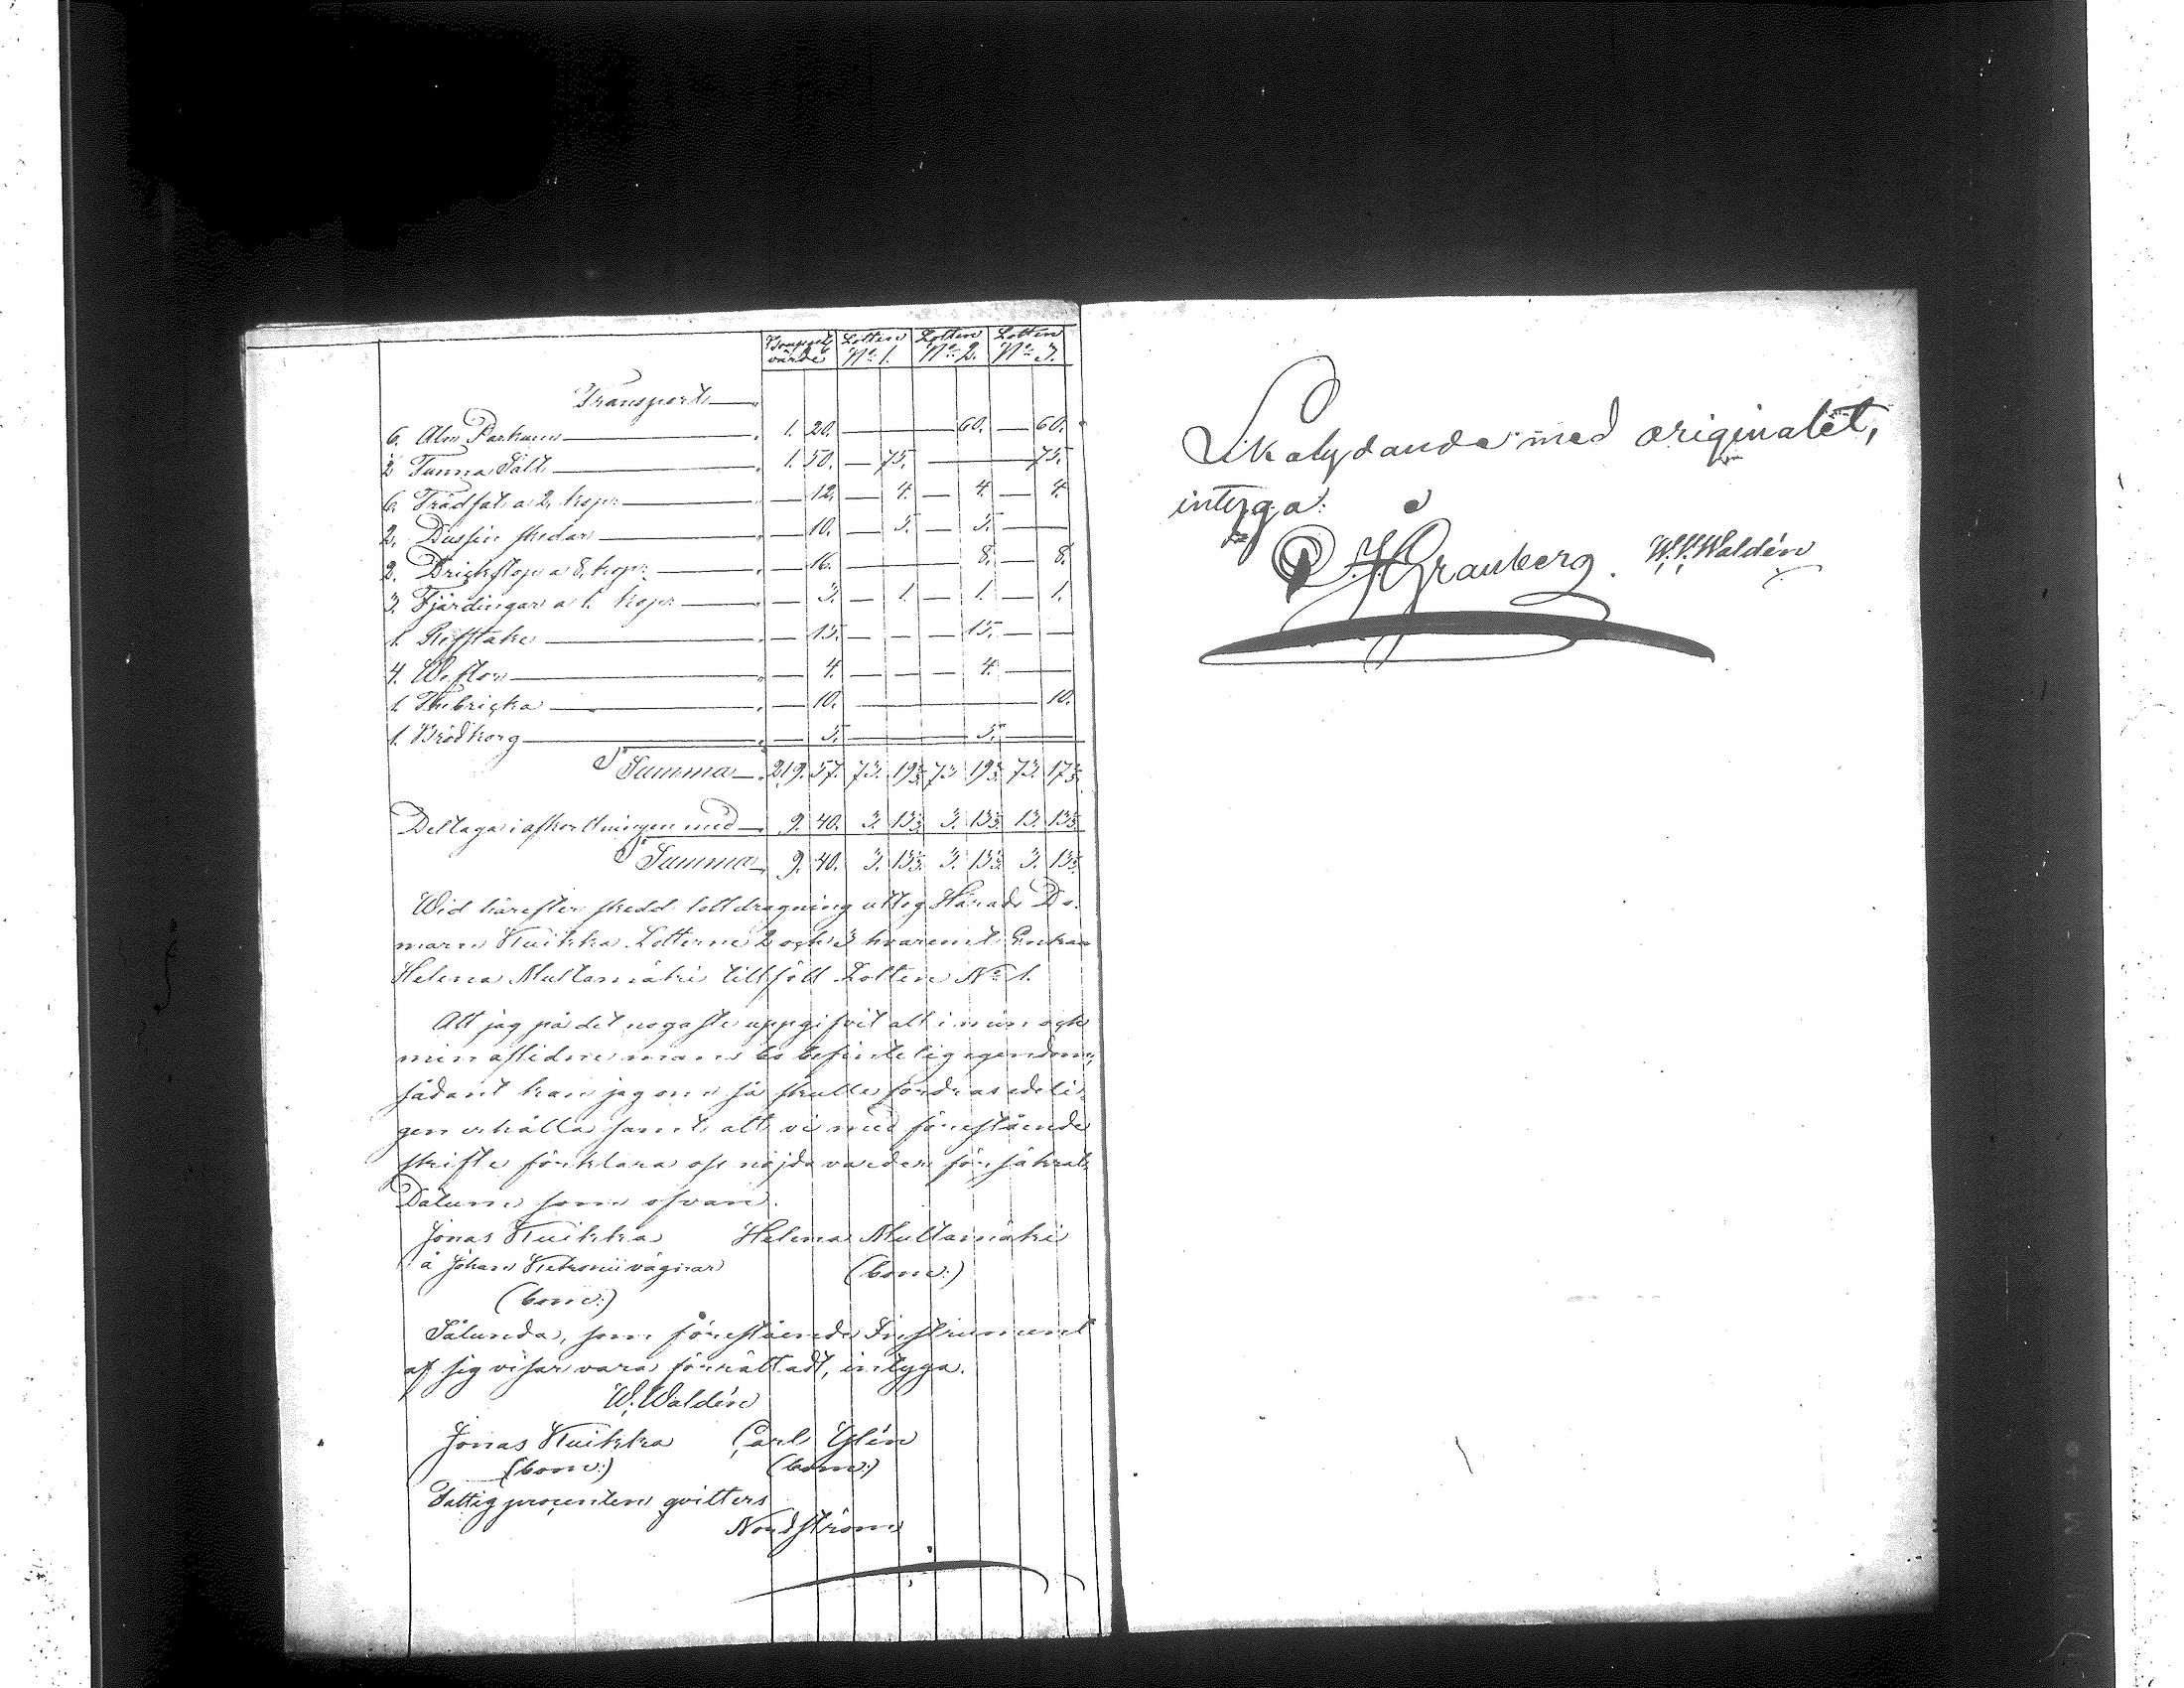 Bouppt. Lotten Lotten Lotten
värde N:o 1. N:o 2. N:o 3.
Transport
6. Aln Parkum 1. 20. — — 60. — 60.
½ Tunna Salt 1. 50. — 75. — 75.
6. Trädfat a 2, kopr — 12. — 4. — 4. — 4.
2. Dussin skedar — 10. — 5. — 5. —
2. Drickstop a 8, kopr — 16. — 8. — 8.
3. Fjärdingar a 1. kopr — 3. — 1. — 1. — 1.
1. — 15. — — — 15. — —
4. — 4. — — — 4. —
1. — 10. — 10.
1. Brödkorg — 5. — 5. —
Summa 219. 57. 73. 19⅓ 73 19⅓ 73. 17⅓
Deltaga i afkortningen med 9. 40. 3. 13⅓ 3. 13⅓ 13. 13⅓
Summa 9. 40. 3. 13⅓ 3. 13⅓ 3. 13⅓
Wid härefter skedd lottdragning uttog Härads Do-
maren Kuikka Lotterne 2 och 3 hvaremot Enkan
Helena Multamäki tillföll Lotten N:o 1.
Att jag på det nogaste uppgifvit alt i min och
min aflidne mans bo befintelig egendom,
sådant kan jag om så skulle fordras edeli-
gen erhålla samt att vi med förestående
skifte förklara oss nöjda varder försäkrat.
Datum som ofvan.
Jonas Kuikka Helena Multamäki
å Johan vägnar (bom:)
(bom:)
Sålunda, som förestående Instrument
af sig visar vara förrättadt, intyga.
W. Waldén
Jonas Kuikka Carl Glén
(bom:) (bom:)
Fattigprocenten qvitters
Nordström
Likalydande med originalet,
intyga:
J. Granberg. W. W. Waldén